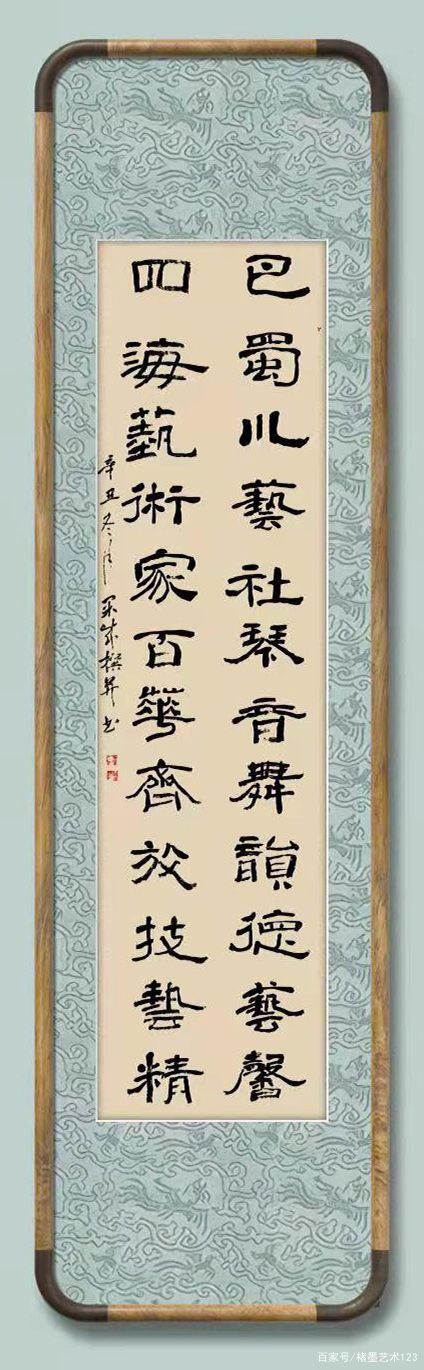 巴蜀川藝社琴音舞韻德藝馨
四海藝術家百華齊放技藝精
辛丑冬月 撰并书
百家号/楮墨艺术123